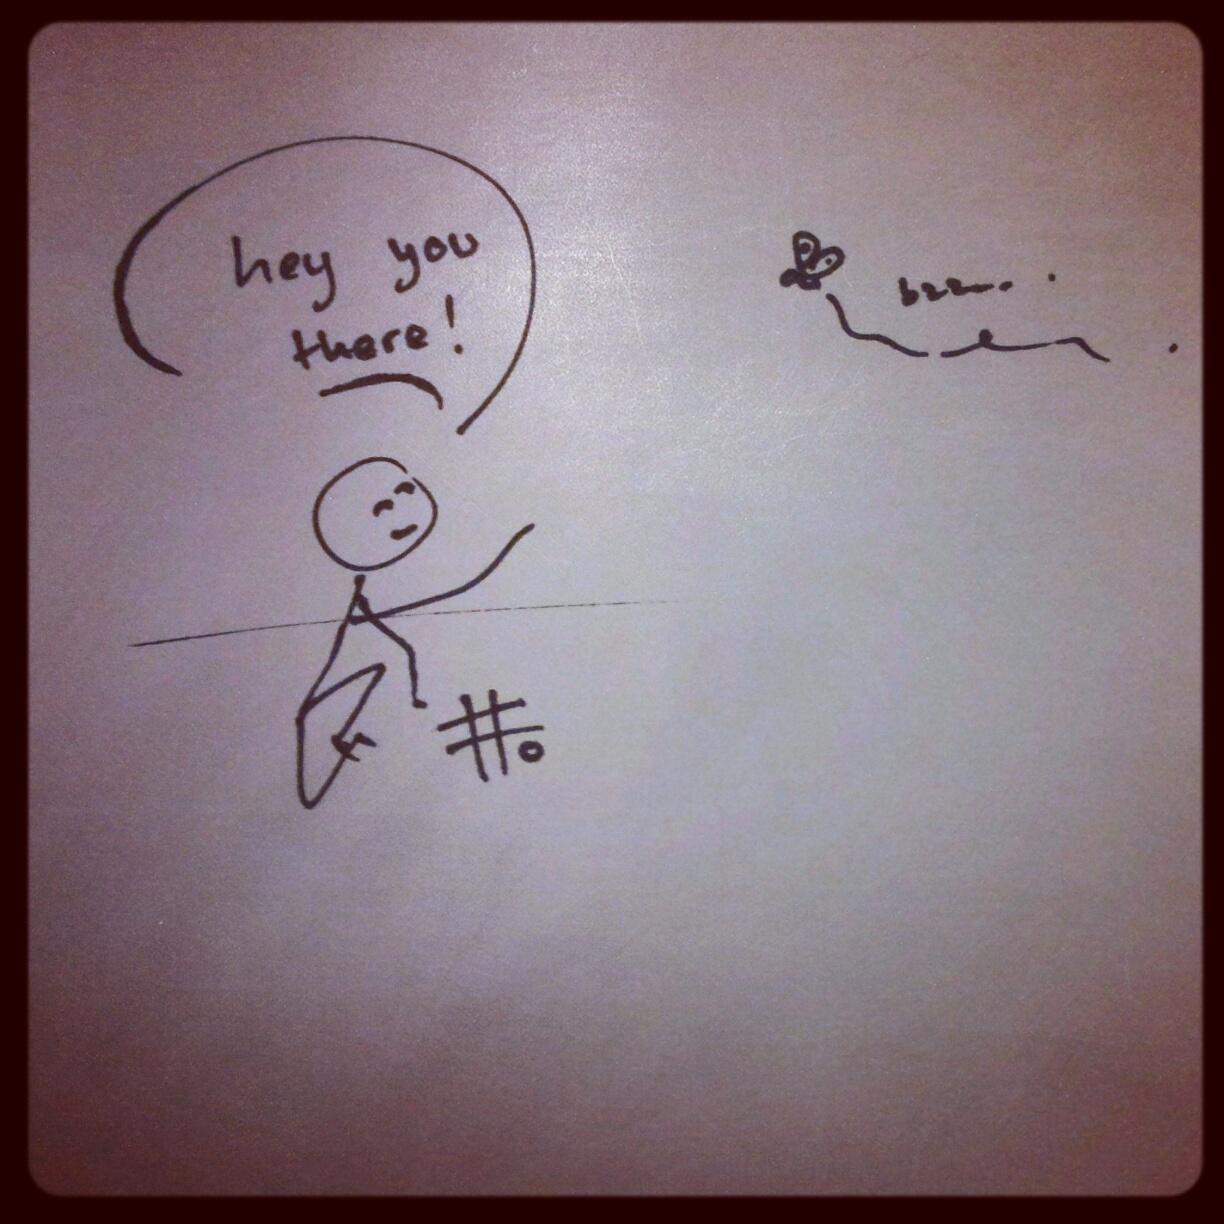 hey you
there!
bzz...